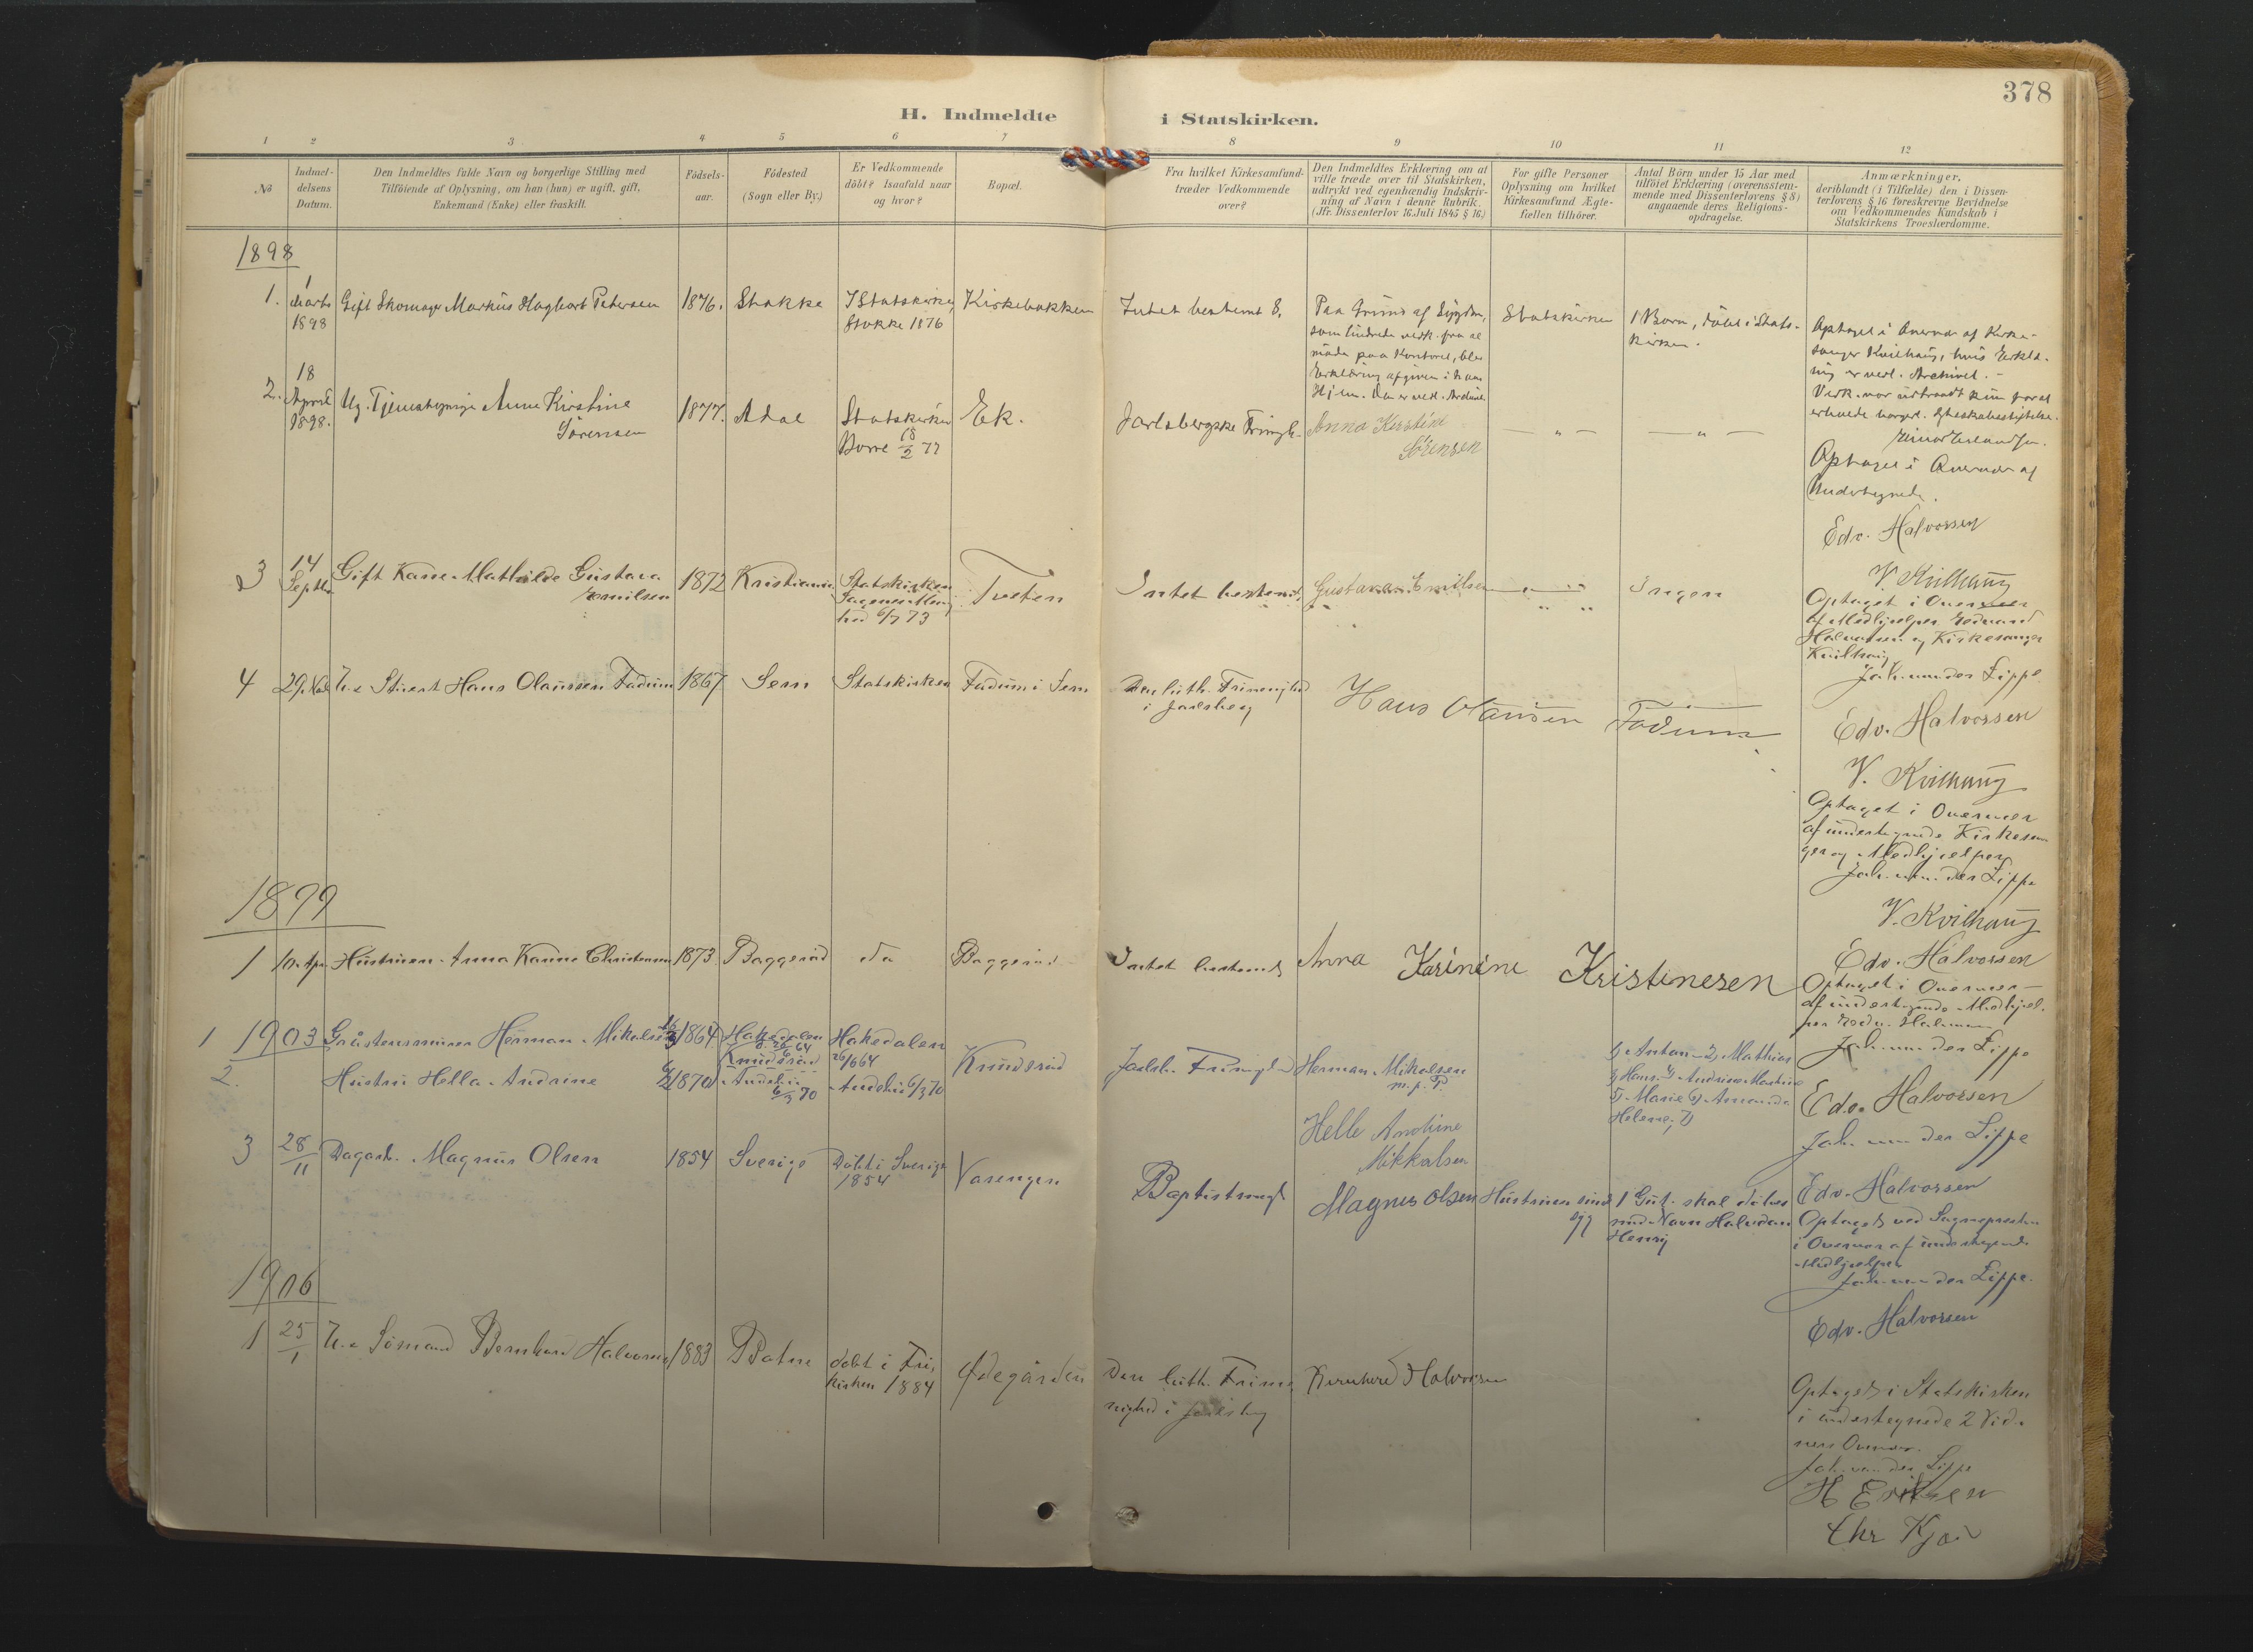 378
H. Indmeldte i Statskirken.
1 2 3 4 5 6 7 8 9 10 11 12
No
Indmel-
delsens
Datum.
Den Indmeldtes fulde Navn og borgerlige Stilling med
Tilføiende af Oplysning, om han (hun) er ugift, gift,
Enkemand (Enke) eller fraskilt.
Fødsels-
aar.
Fødested
(Sogn eller By.)
Er Vedkommende
døbt? Isaafald naar
og hvor?
Bopæl.
Fra hvilket Kirkesamfund
træder Vedkommende
over?
Den Indmeldtes Erklæring om at
ville træde over til Statskirken,
udtrykt ved egenhændig Indskriv-
ning af Navn i denne Rubrik.
(Jfr. Dissenterlov 16. Juli 1845 § 16.)
For gifte Personer
Oplysning om hvilket
Kirkesamfund Ægte-
fællen tilhører.
Antal Børn under 15 Aar med
tilføiet Erklæring (overensstem-
mende med Dissenterlovens § 8)
angaaende deres Religions-
opdragelse.
Anmærkninger,
deriblandt (i Tilfælde) den i Dissen-
terlovens § 16 foreskrevne Bevidnelse
om Vedkommendes Kundskab i
Statskirkens Troeslærdomme.
1898
1.
1
Marts
1898
Gift Skomager Markus Hagbart Petersen
1876.
Stokke
I Statskirken,
Stokke 1876
Kirkebakken
Intet bestemt S.
Paa Grund af Sygdom,
som hindrede vedk. fra at
møde paa Kontoret, blev
Erklæring afgiven i hans
Hjem. Den er vedl. Archivet
Statskirken
1 Barn, døbt i Stats-
kirken.
Optaget i Overvær af Kirke-
sanger Kvilhaug, hvis Erklæ-
ring er vedl. Archivet. -
Vedk. var udtraadt kun for at
erholde borgerl. Egteskabsstiftelse.
2.
18
April
1898.
Ug. Tjenestepige Anne Kirstine
Sørensen
1877.
Adal
Statskirken
Borre 18/2 77
Ek.
Jarlsbergske Frimgh.
Anna Kirstine
Sørensen
— „ —
— „ —
Optaget i Overvær af
Undertegnede.
Edv. Halvorsen
V. Kvilhaug
3
14
Septbr
Gift Kone Mathilde Gustava
Emilsen
1872
Kristiania
Statskirken
6/7 73
Tveten
Intet bestemt
Gustava Emilsen
„
Ingen
Optaget i Overvær
af Medhjælper Edvard
Halvorsen og Kirkesanger
Kvilhaug
Joh. von der Lippe
Edv. Halvorsen
V. Kvilhaug
4
29. Nov
U.g. Stuert Hans Olaussen Fadum
1867
Sem
Statskirken
Fadum i Sem
Den luth. Frimenighed
i Jarlsberg
Hans Olausen Fadum
Optaget i Overvær
af undertegnede Kirkesan
ger og Medhjælper
Joh. von der Lippe
V. Kvilhaug
Edv. Halvorsen
1899
1
10. Apr.
Hustruen Anna Karine Christensen
1873
Baggerød
da
Baggerød
Intet bestemt
Anna Karinine Kristinesen
Optaget i Overvær
af undertegnede Medhjæl-
per Edv. Halvorsen
Joh. von der Lippe
Edv. Halvorsen
1 1903
Gråstensminer Herman Mikalsen
1864
Hakedalen
Knudsrød
Hakedalen
26/6 64
Knudsrød
Jarlsb. Frimgh
Herman Mikalsen
m. p. P.
1) Anton 2) Mathias
3) Hans 4) Andrine Mathine
5) Marie 6) Amanda
Helene, 7)
2.
Hustru Hella Andrine
1870
Andebu
6/3 70
Andebu 6/3 70
Helle Andrine
Mikkalsen
Joh. von der Lippe
Edv. Halvorsen
3
28/11
Dagarb. Magnus Olsen
1854
Sverige
Døbt i Sverige
1854
Varengen
Baptistmgh
Magnus Olsen
Hustruen sind
syg
1 Gut. skal døbes
med Navn Halvdan
Henry
Optaget ved Sognepresten
i Overvær af undertegnede
Medhjælper
Joh. von der Lippe.
Edv. Halvorsen
1906
1
25/1
U.g. Sømand Bernhard Halvorsen
1883
Botne
døbt i Fri-
kirken 1884
Ødegården
Den luth. Frime
nighed i Jarlsberg
Bernhard Halvorsen
Optaget i Statskirken
i undertegnede 2 Vid-
ners Overvær.
Joh. von der Lippe
H Eriksen
Chr Kjær